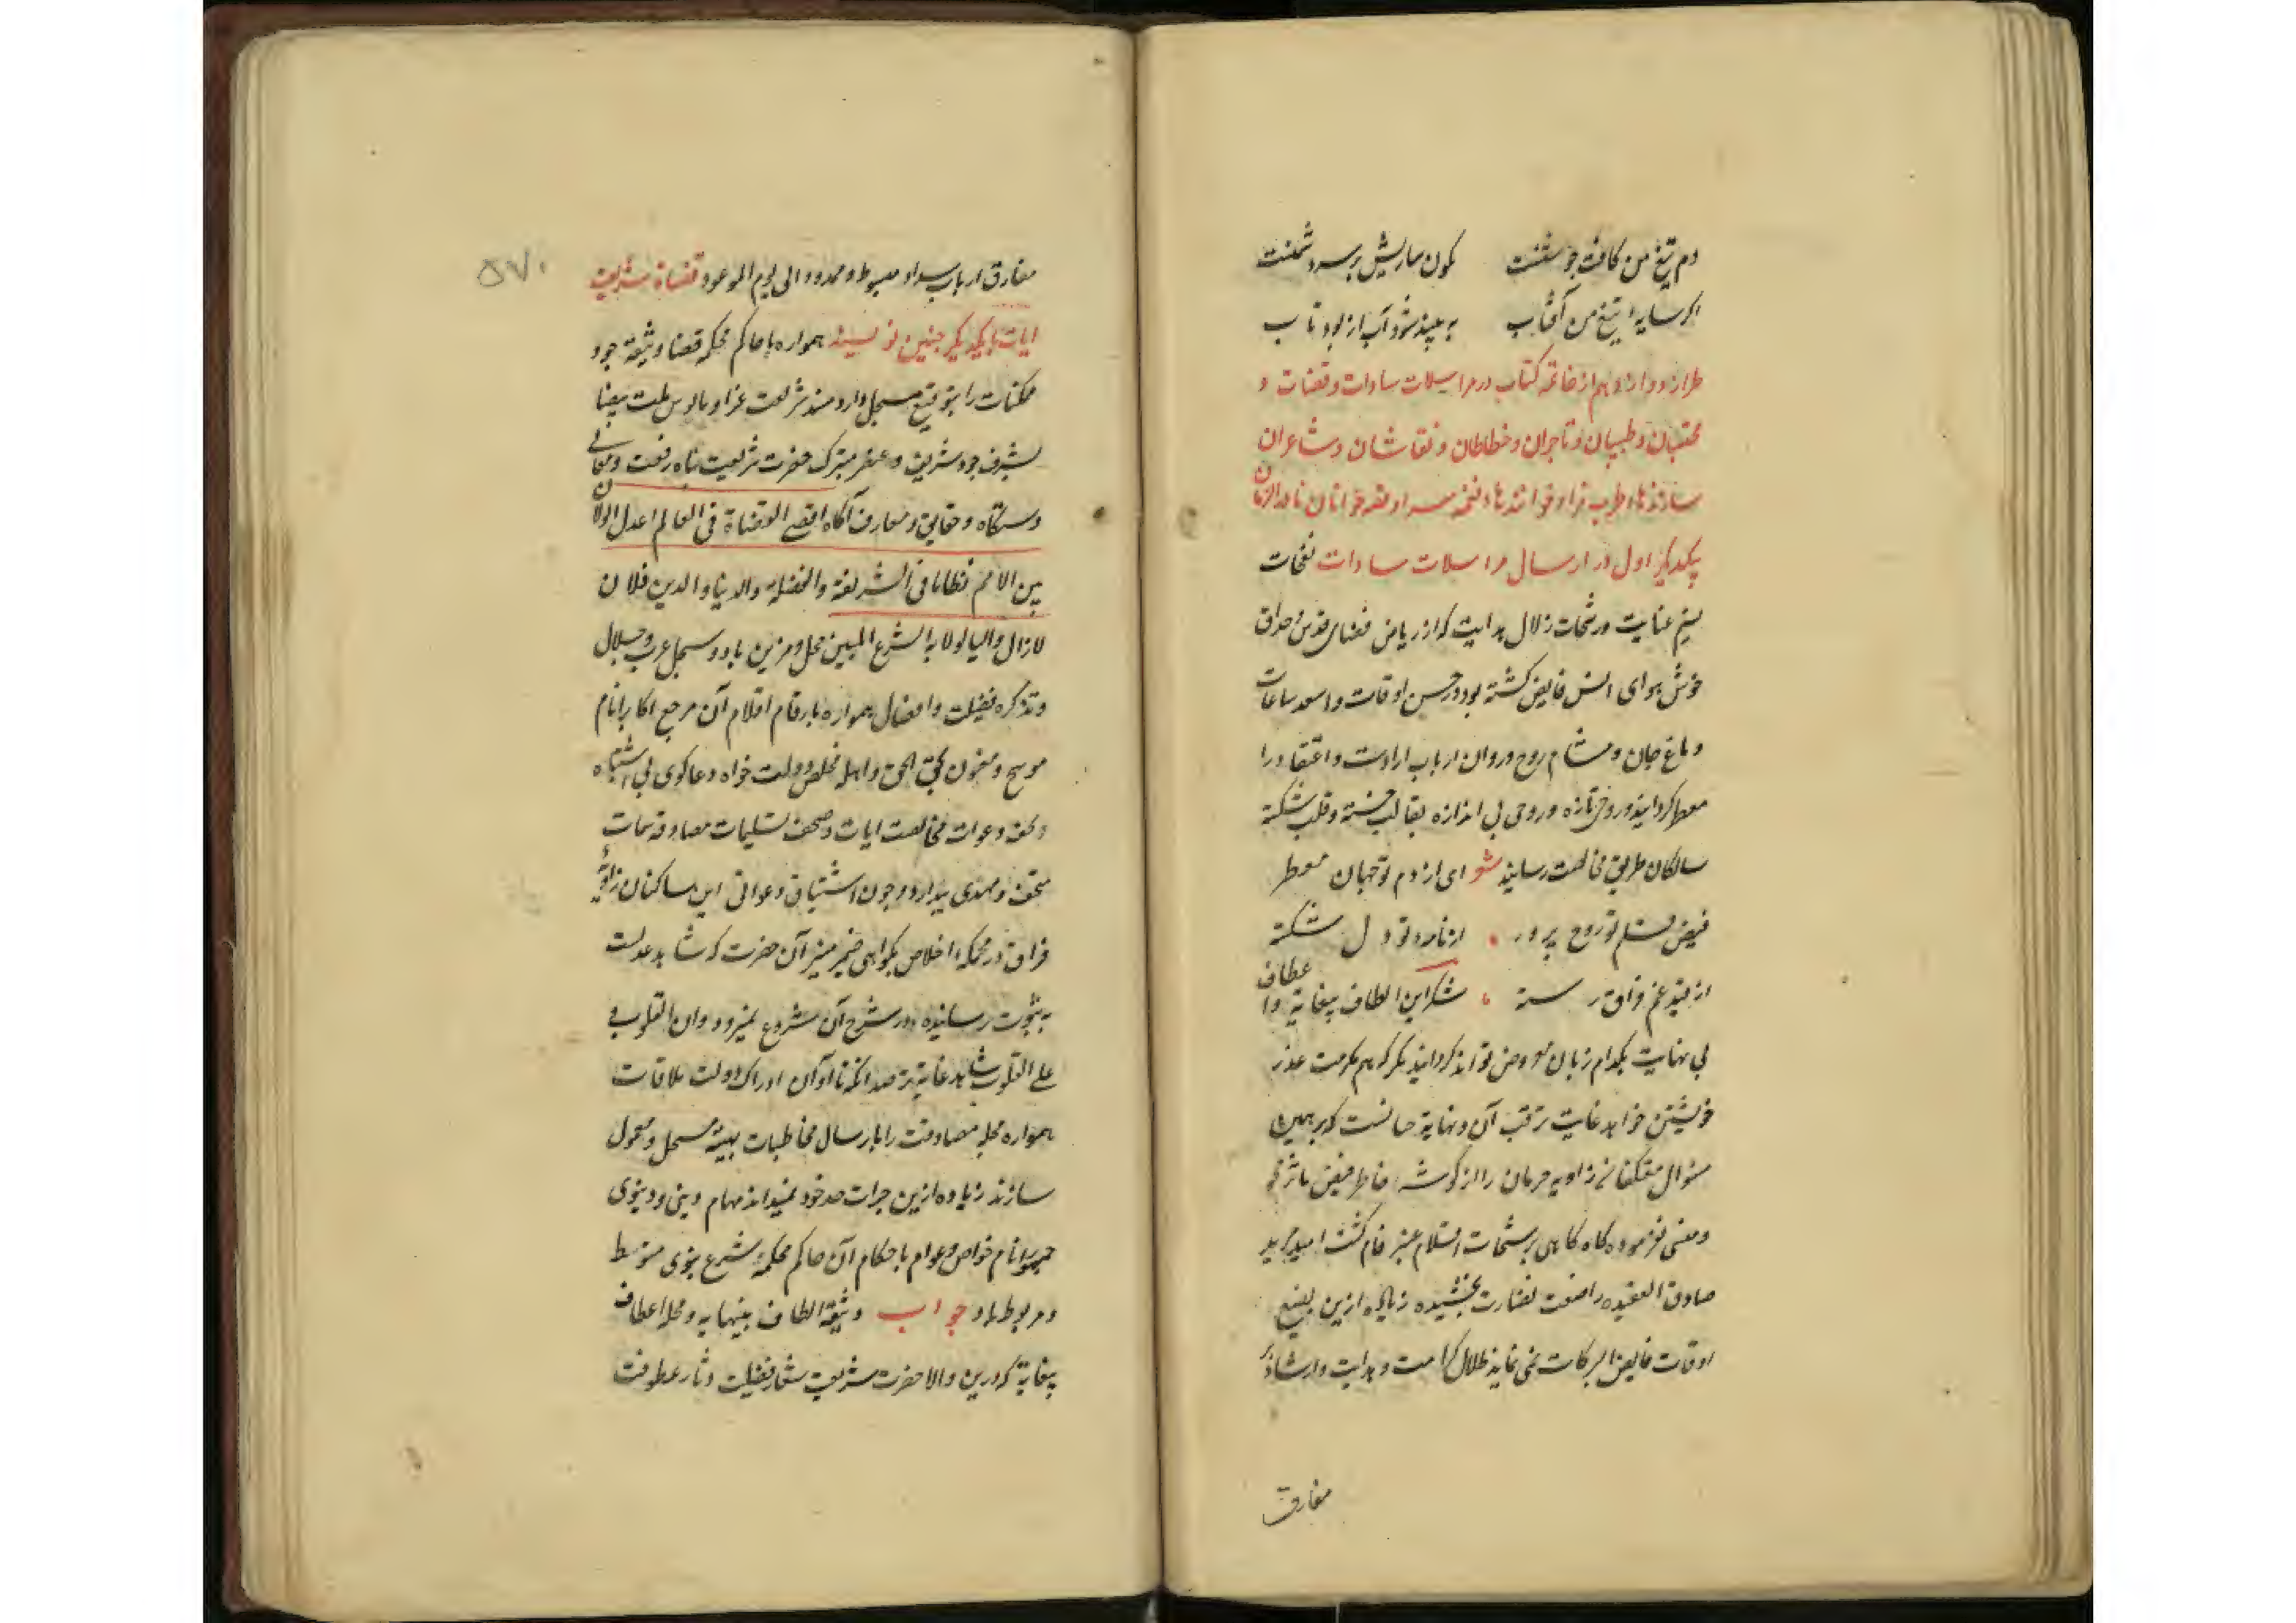 دم تیغ من کافت جوشنست نکون سارپش بر سرد شمنست
اکر سایهٔ تیغ من آفتاب به بیند شود آب از بود تاب
طراز دوازدهم از خاتمه کتاب در مراسلات سادات و قضات و
محتسبان و طبیبان و تاجران و خطاطان و نقاشان و شاعران
سازندهاء طرب فزا و خوانندهاء نغمه سرا و قصه خوانان نادر الزمان
یکدیکر اول در ارسال مراسلات سادات نفحات
نسیم عنایت و رشحات زلال هدایت که از ریاض فضای قدس و حدائق
خوش هوای انس فایض کشته بود در احسن اوقات و اسعد ساعات
دماغ جان و مشام روح و روان ارباب ارادت و اعتقاد را
معطر کردانید و روحی تازه و روحی بی اندازه بقالب خسته و قلب شکسته
سالکان طریق مخالصت رسانید شعر ای از دم تو جهان معطر
فیض قلم تو روح پرور از نامه تو دل شکسته
از بند غم فراق رسته شکر این الطاف بیغایة و اعطاف
بی نهایت بکدام زبان معروض تواند کردانید مکر که هم مکرمت عذر
خویشتن خواهد غایت ترقب آن و نهایة حالست که بر همین
منوال معتکفان زاویه حرمان را از کوشه خاطر فیض مآثر محو
و منسی نفرموده کاه کاهی برشحات اقلام عنبر فام کشت امید مرید
صادق العقیده را صفت نضارت بخشیده زیاده ازین تضییع
اوقات فایض البرکات نمی نماید ظلال کرامت و هدایت و ارشاد بر
مفارق
۵۷۰
مفارق ارباب سداد مبسوط و ممدود الی یوم الموعود قضاة شریعت
ایات بایکدیکر چنین نویسند همواره با حاکم محکمه قضا وثیقهٔ وجود
ممکنات را بتوقیع مسجل دارد مسند شریعت غرا و بالوس ملت بیضا
بشرف وجود شریف و عنصر متبرک حضرت شریعت پناه رفعت و معالی
دستکاه و حقایق و معارف آکاه اقضی القضاة فی العالم اعدل الولاة
بین الامم نظاما فی الشریعة و الفضیلة والدنیا والدین فلان
لازال والیا لولایة الشرع المبین محلی و مزین باد و سجل عرب و جلال
و تذکره فضیلت و افضال همواره بارقام اقلام آن مرجع اکابر انام
موشح و معنون بحق الحق و اهله مخلص دولت خواه و دعاکوی بی اشتباه
و تحف دعوات مخالصت ایات و صحف تسلیمات مصادقه سمات
متحف و مهدی میدارد و چون اشتیاق و دعوای این ساکنان زاویهٔ
فراق در محکمهٔ اخلاص بکواهی ضمیر منیر آن حضرت که شاهد عدلست
به ثبوت رسانیده در شرح آن شروع نمیرود وان القلوب
علی القلوب شاهد غایة مقصد آنکه تا آوان ادراک دولت ملاقات
همواره محله مصادقت را بارسال مخاطبات بهیه مسجل و معمول
سازند زیاده ازین جرات حد خود نمیداند مهام دینی و دنیوی
جمهور انام خواص و عوام باحکام آن حاکم محکمهٔ شرع نبوی منوط
و مربوط باد جواب وثیقهٔ الطاف بینهایه و محله اعطاف
بیغایة که درین والا حضرت شریعت شعار فضیلت دثار عطوفت